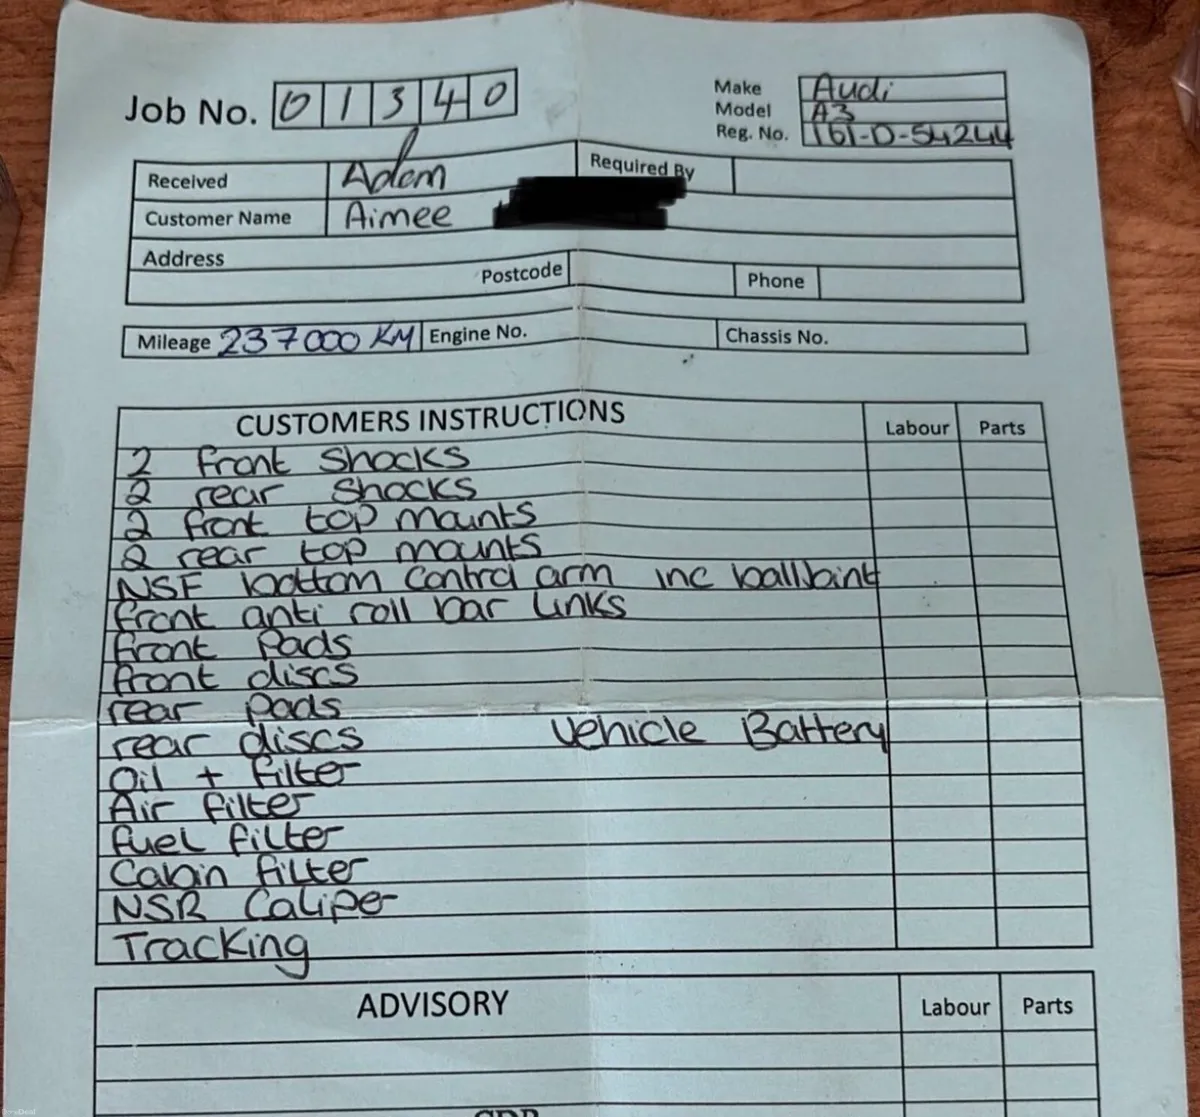 Job No. 01340
Make Audi
Model A3
Reg. No. 161-D-54244
Received Adam Required By
Customer Name Aimee
Address
Postcode Phone
Mileage 237000 KM Engine No. Chassis No.
CUSTOMERS INSTRUCTIONS Labour Parts
2 front shocks
2 rear shocks
2 front top mounts
2 rear top mounts
NSF bottom control arm inc balljoint
front anti roll bar links
front Pads
front discs
rear pads
rear discs vehicle Battery
Oil + filter
Air filter
fuel filter
Cabin filter
NSR Caliper
Tracking
ADVISORY Labour Parts
DoneDeal